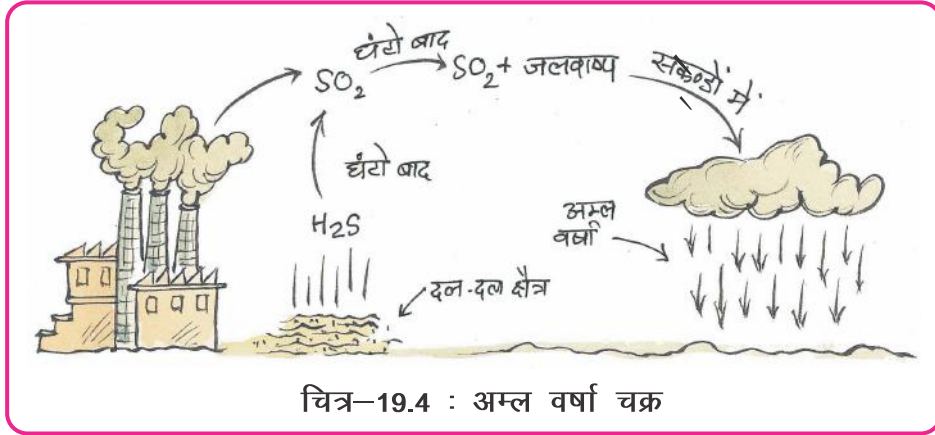 घंटो बाद
SO2
SO2 + जलवाष्प
सकेण्डों में
घंटो बाद
H2S
अम्ल
वर्षा
दल-दल क्षैत्र
चित्र–19.4 : अम्ल वर्षा चक्र